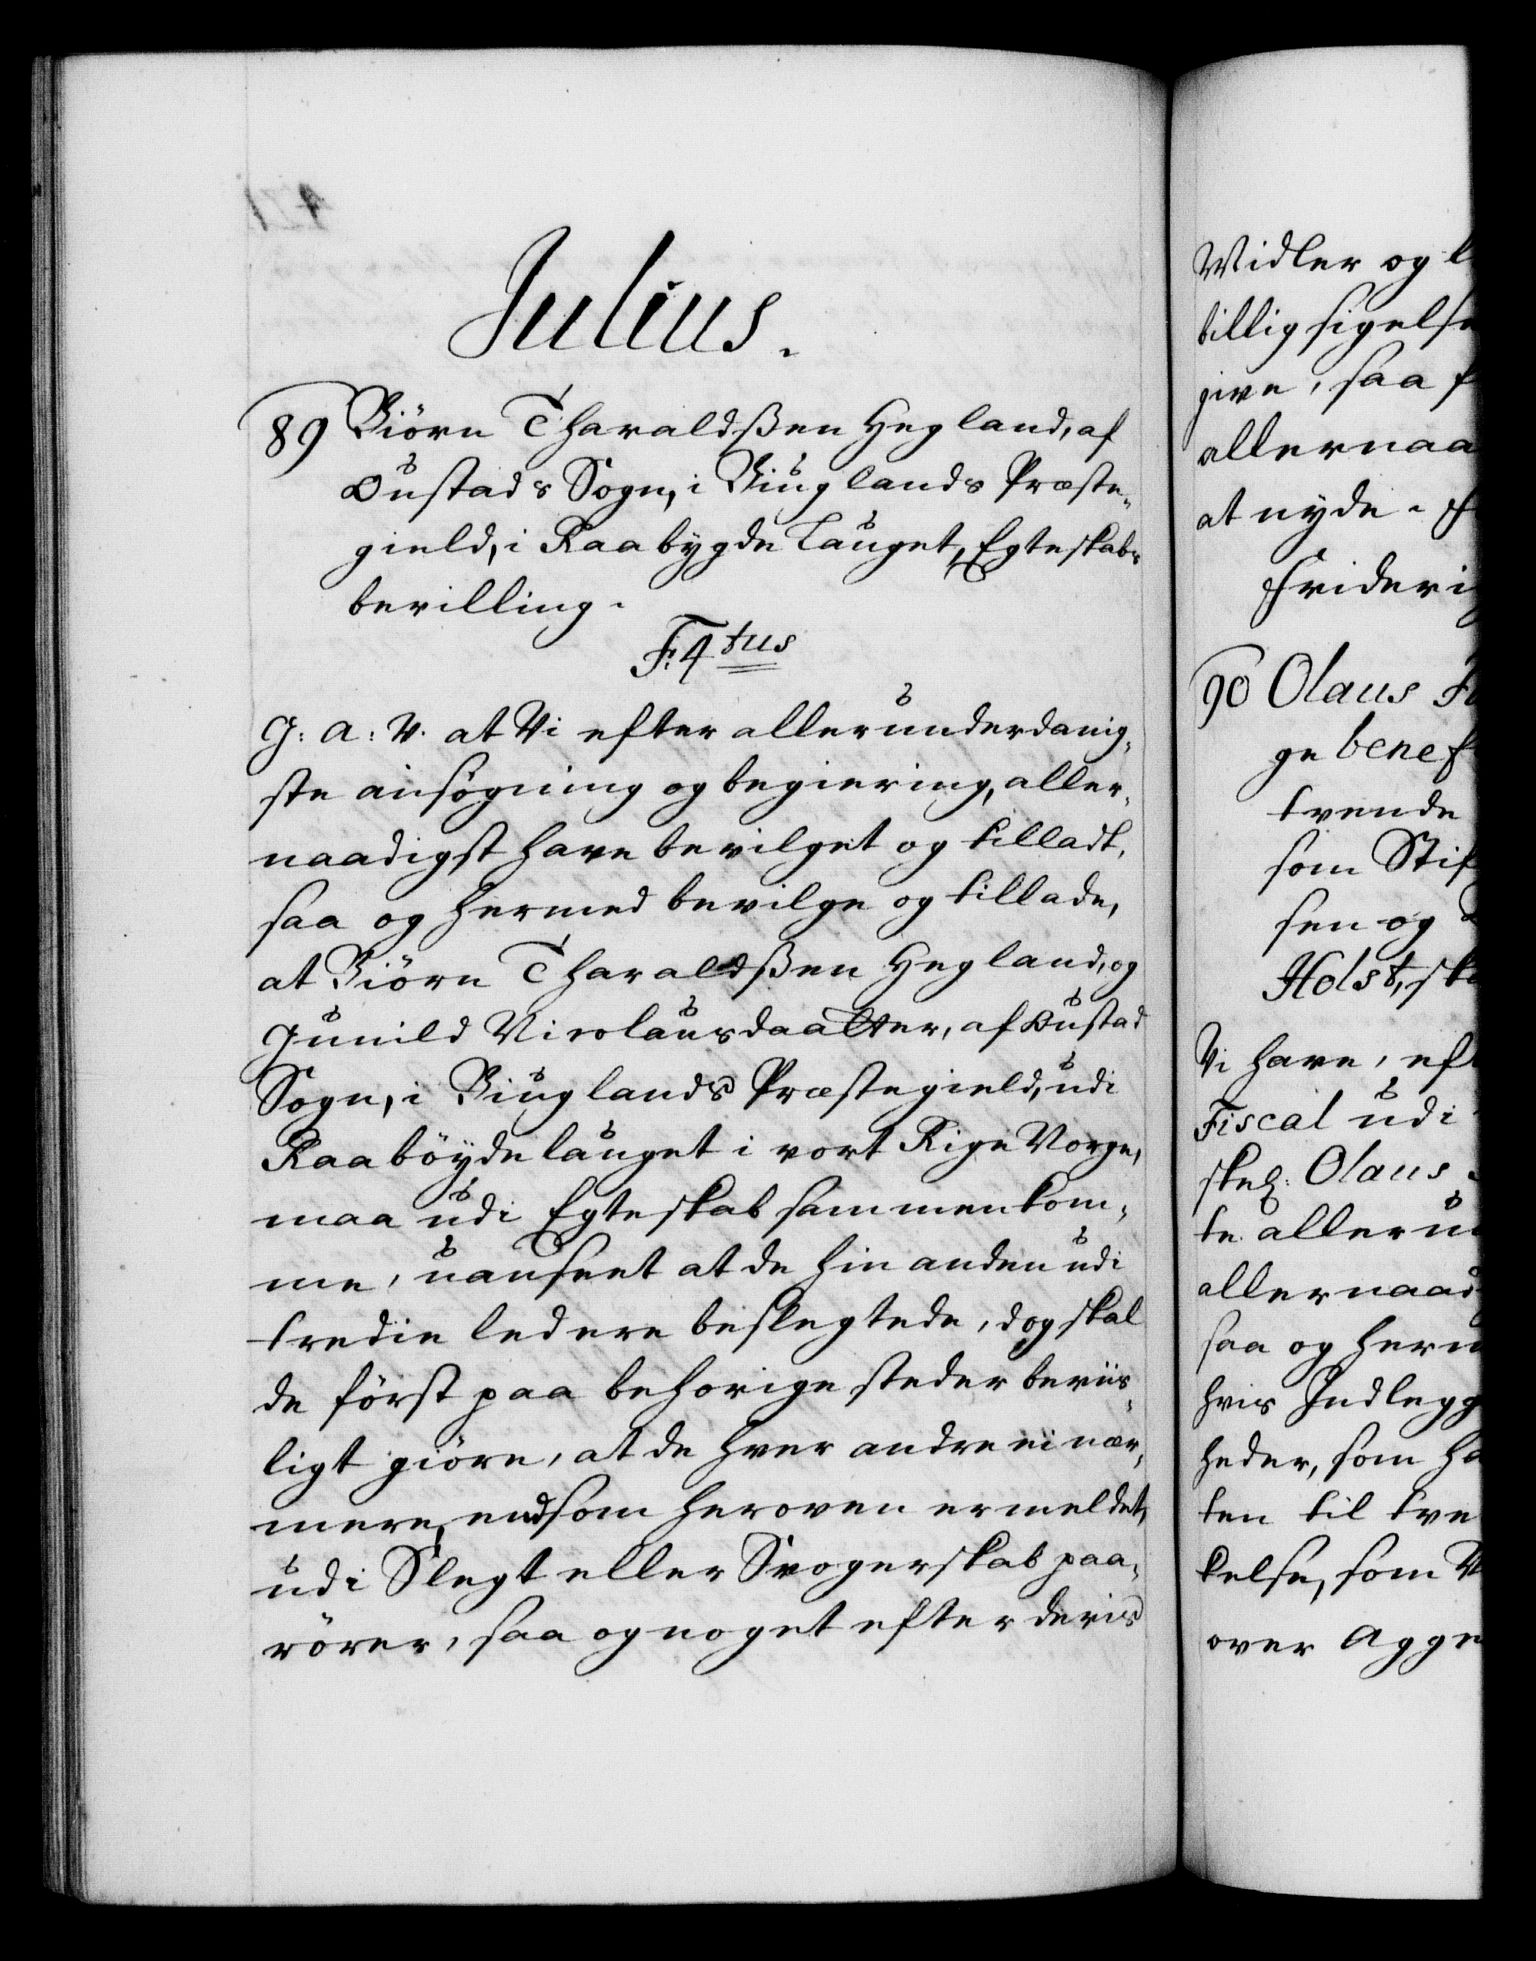 Julius.
89 Biörn Tharaldßen Hegland, af
Oustads Sogn, i Biuglands Præste-
gield, i Raabygde Lauget, Egteskabs
bevilling.
F: 4tus
G: A: V. at Vi efter allerunderdanig-
ste ansøgning og begiering, aller-
naadigst have bevilget og tilladt,
saa og hermed bevilge og tillade,
at Biörn Tharaldßen Hegland, og
Gunild Nicolausdaatter, af Oustad
Sogn, i Biuglands Præstegield, udi
Raaböydelauget i vort Rige Norge,
maa udi Egteskab sammenkom-
me, uanseet at de hinanden udi
tredie led ere beslegtede, dog skal
de først paa behørige steder beviis-
ligt giøre, at de hver andre ei nær-
mere, end som heroven er meldet,
udi Slegt eller Svogerskab paa-
rører, saa og noget efter deris
Midler og l
tillig sigelse
give, saa f
allernaa
at nyde. F
Friderig
90 Olaus
ge benef
tvende
som Stif
sen og
Holst, ska
Vi have, eft
Fiscal udi
skel: Olaus
te allerun
allernaad
saa og herm
hvis Indlegg
heder, som ha
ten til tve
kelse, som V
over Agge